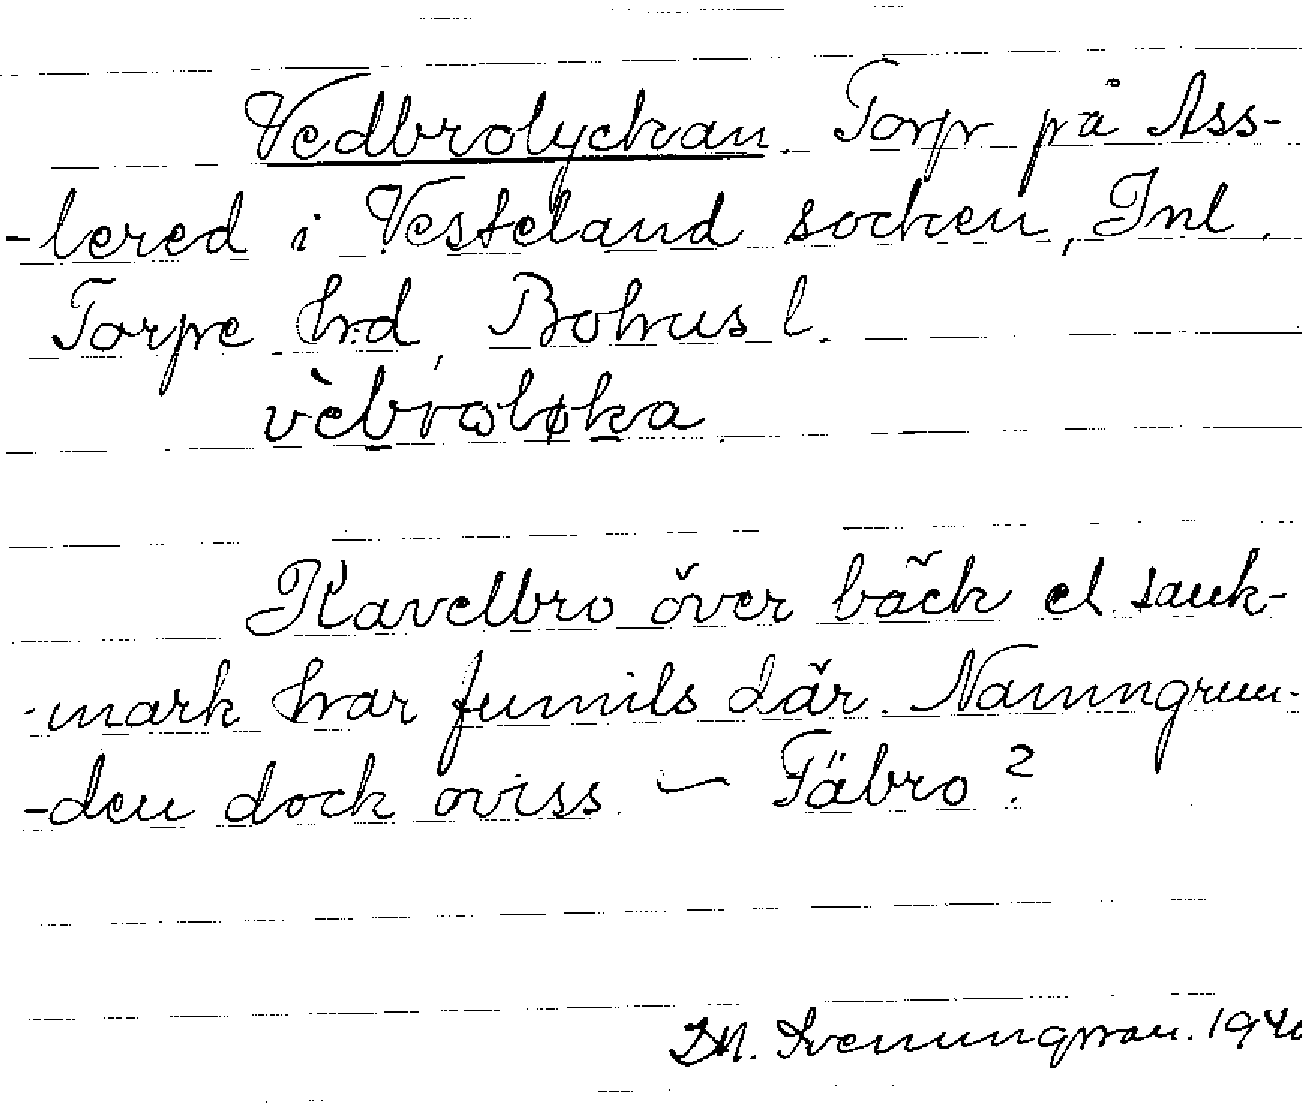 Vedbrolyckan. Torp på Ass-
-lered i Vesteland socken, Inl.
Torpe hrd, Bohus l.
vèbroløka
Kavelbro över bäck el. sank-
-mark har funnits där. Namngrun-
-den dock oviss. – Täbro?
Svenungsson. 1940